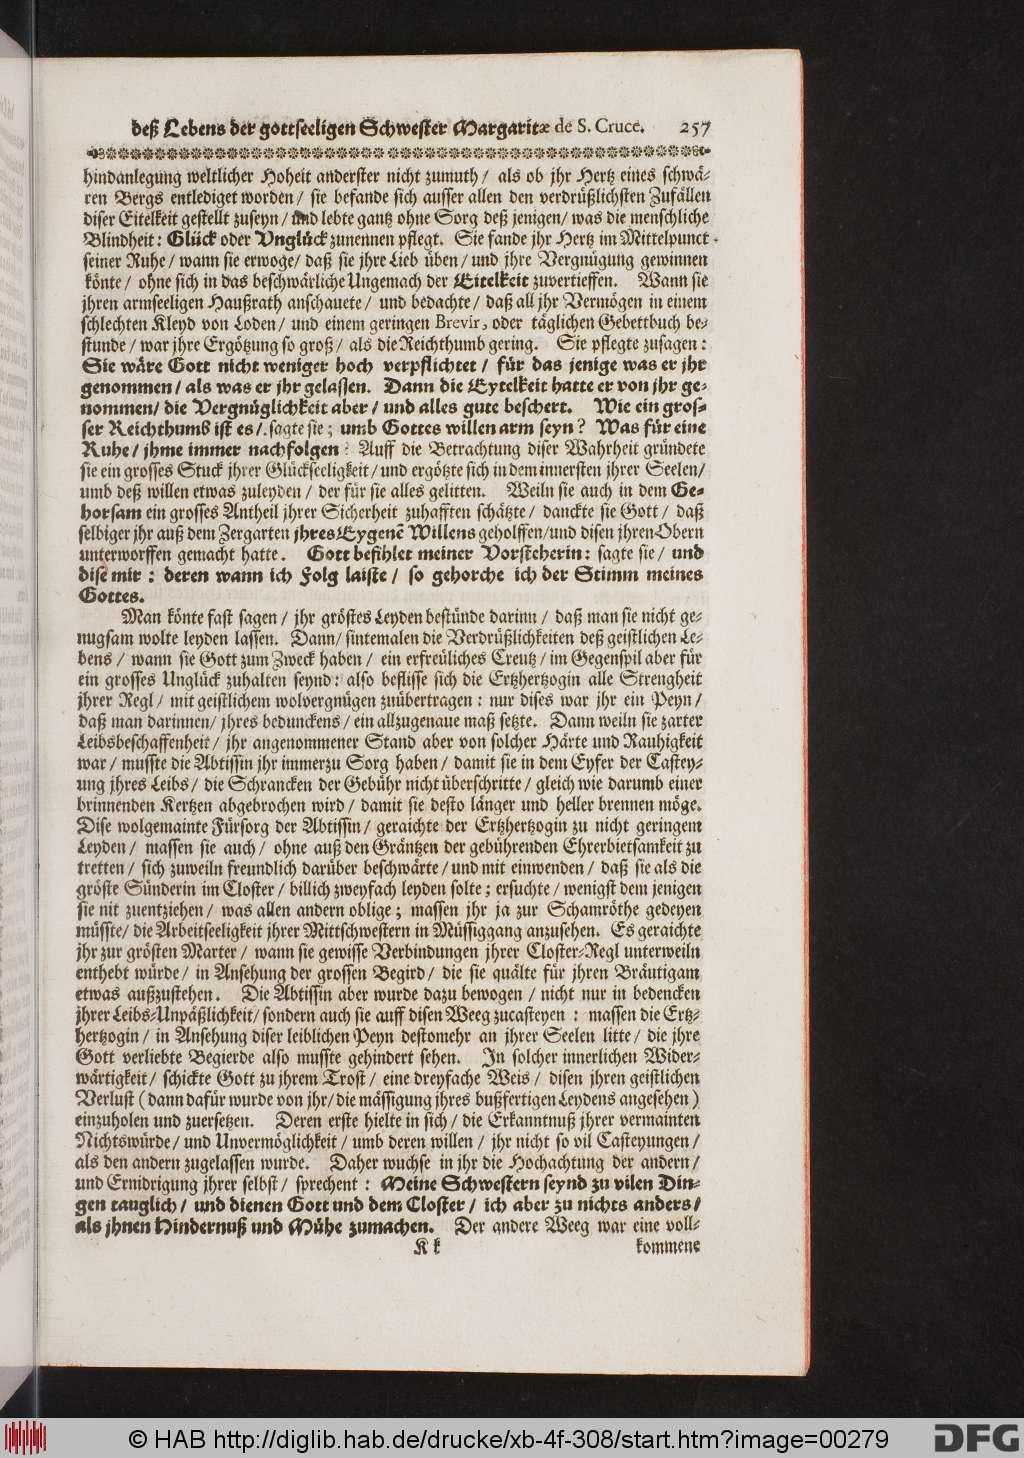 deß Lebens der gottseeligen Schwester Margaritæ de S. Cruce. 257
hindanlegung weltlicher Hoheit anderster nicht zumuth / als ob jhr Hertz eines schwä-
ren Bergs entlediget worden / sie befande sich ausser allen den verdrüßlichsten Zufällen
diser Eitelkeit gestellt zuseyn / und lebte gantz ohne Sorg deß jenigen / was die menschliche
Blindheit: Glück oder Vnglück zunennen pflegt. Sie fande jhr Hertz im Mittelpunct
seiner Ruhe / wann sie erwoge / daß sie jhre Lieb üben / und jhre Vergnügung gewinnen
könte / ohne sich in das beschwärliche Ungemach der Eitelkeit zuvertieffen. Wann sie
jhren armseeligen Haußrath anschauete / und bedachte / daß all jhr Vermögen in einem
schlechten Kleyd von Loden / und einem geringen Brevir, oder täglichen Gebettbuch be-
stunde / war jhre Ergötzung so groß / als die Reichthumb gering. Sie pflegte zusagen:
Sie wäre Gott nicht weniger hoch verpflichtet / für das jenige was er jhr
genommen / als was er jhr gelassen. Dann die Eytelkeit hatte er von jhr ge-
nommen / die Vergnüglichkeit aber / und alles gute beschert. Wie ein gros-
ser Reichthumb ist es / sagte sie; umb Gottes willen arm seyn? Was für eine
Ruhe / jhme immer nachfolgen? Auff die Betrachtung diser Wahrheit gründete
sie ein grosses Stuck jhrer Glückseeligkeit / und ergötzte sich in dem innersten jhrer Seelen /
umb deß willen etwas zuleyden / der für sie alles gelitten. Weiln sie auch in dem Ge-
horsam ein grosses Antheil jhrer Sicherheit zuhafften schätzte / danckte sie Gott / daß
selbiger jhr auß dem Zergarten jhres Eygenē Willens geholffen / und disen jhren Obern
unterworffen gemacht hatte. Gott befihlet meiner Vorsteherin: sagte sie / und
dise mir: deren wann ich Folg laiste / so gehorche ich der Stimm meines
Gottes.
Man könte fast sagen / jhr gröstes Leyden bestünde darinn / daß man sie nicht ge-
nugsam wolte leyden lassen. Dann / sintemalen die Verdrüßlichkeiten deß geistlichen Le-
bens / wann sie Gott zum Zweck haben / ein erfreüliches Creutz / im Gegenspil aber für
ein grosses Unglück zuhalten seynd: also beflisse sich die Ertzhertzogin alle Strengheit
jhrer Regl / mit geistlichem wolvergnügen zuübertragen: nur dises war jhr ein Peyn /
daß man darinnen / jhres bedunckens / ein allzugenaue maß setzte. Dann weiln sie zarter
Leibsbeschaffenheit / jhr angenommener Stand aber von solcher Härte und Rauhigkeit
war / musste die Abtissin jhr immerzu Sorg haben / damit sie in dem Eyfer der Castey-
ung jhres Leibs / die Schrancken der Gebühr nicht überschritte / gleich wie darumb einer
brinnenden Kertzen abgebrochen wird / damit sie desto länger und heller brennen möge.
Dise wolgemainte Fürsorg der Abtissin / geraichte der Ertzhertzogin zu nicht geringem
Leyden / massen sie auch / ohne auß den Gräntzen der gebührenden Ehrerbietsamkeit zu
tretten / sich zuweiln freundlich darüber beschwärte / und mit einwenden / daß sie als die
gröste Sünderin im Closter / billich zweyfach leyden solte; ersuchte / wenigst dem jenigen
sie nit zuentziehen / was allen andern oblige; massen jhr ja zur Schamröthe gedeyen
müsste / die Arbeitseeligkeit jhrer Mittschwestern in Müssiggang anzusehen. Es geraichte
jhr zur grösten Marter / wann sie gewisse Verbindungen jhrer Closter-Regl unterweiln
enthebt würde / in Ansehung der grossen Begird / die sie quälte für jhren Bräutigam
etwas außzustehen. Die Abtissin aber wurde dazu bewogen / nicht nur in bedencken
jhrer Leibs-Unpäßlichkeit / sondern auch sie auff disen Weeg zucasteyen: massen die Ertz-
hertzogin / in Ansehung diser leiblichen Peyn destomehr an jhrer Seelen litte / die jhre
Gott verliebte Begierde also musste gehindert sehen. In solcher innerlichen Wider-
wärtigkeit / schickte Gott zu jhrem Trost / eine dreyfache Weis / disen jhren geistlichen
Verlust (dann dafür wurde von jhr / die mässigung jhres bußfertigen Leydens angesehen)
einzuholen und zuersetzen. Deren erste hielte in sich / die Erkanntnuß jhrer vermainten
Nichtswürde / und Unvermöglichkeit / umb deren willen / jhr nicht so vil Casteyungen /
als den andern zugelassen wurde. Daher wuchse in jhr die Hochachtung der andern /
und Ernidrigung jhrer selbst / sprechent: Meine Schwestern seynd zu vilen Din-
gen tauglich / und dienen Gott und dem Closter / ich aber zu nichts anders /
als jhnen Hindernuß und Mühe zumachen. Der andere Weeg war eine voll-
K k kommene
© HAB http://diglib.hab.de/drucke/xb-4f-308/start.htm?image=00279
DFG